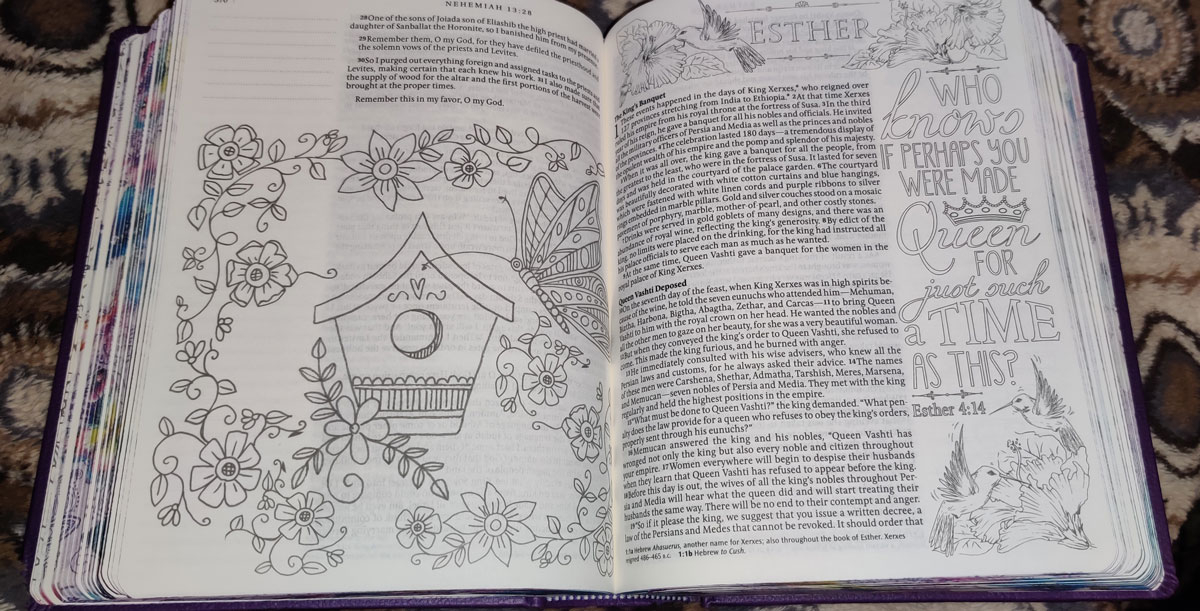 NEHEMIAH 13:28
28One of the sons of Joiada son of Eliashib the high priest had married a
daughter of Sanballat the Horonite, so I banished him from my presence.
29Remember them, O my God, for they have defiled the priesthood and
the solemn vows of the priests and Levites.
30So I purged out everything foreign and assigned tasks to the priests and
Levites, making certain that each knew his work. 31I also made sure that
the supply of wood for the altar and the first portions of the harvest were
brought at the proper times.
Remember this in my favor, O my God.
ESTHER
The King's Banquet
1 These events happened in the days of King Xerxes,* who reigned over
127 provinces stretching from India to Ethiopia.* 2At that time Xerxes
ruled his empire from his royal throne at the fortress of Susa. 3In the third
year of his reign, he gave a banquet for all his nobles and officials. He invited
all the military officers of Persia and Media as well as the princes and nobles
of the provinces. 4The celebration lasted 180 days—a tremendous display of
the opulent wealth of his empire and the pomp and splendor of his majesty.
5When it was all over, the king gave a banquet for all the people, from
the greatest to the least, who were in the fortress of Susa. It lasted for seven
days and was held in the courtyard of the palace garden. 6The courtyard
was beautifully decorated with white cotton curtains and blue hangings,
which were fastened with white linen cords and purple ribbons to silver
rings embedded in marble pillars. Gold and silver couches stood on a mosaic
pavement of porphyry, marble, mother-of-pearl, and other costly stones.
7Drinks were served in gold goblets of many designs, and there was an
abundance of royal wine, reflecting the king's generosity. 8By edict of the
king, no limits were placed on the drinking, for the king had instructed all
his palace officials to serve each man as much as he wanted.
9At the same time, Queen Vashti gave a banquet for the women in the
royal palace of King Xerxes.
Queen Vashti Deposed
10On the seventh day of the feast, when King Xerxes was in high spirits be-
cause of the wine, he told the seven eunuchs who attended him—Mehuman,
Biztha, Harbona, Bigtha, Abagtha, Zethar, and Carcas—11to bring Queen
Vashti to him with the royal crown on her head. He wanted the nobles and
all the other men to gaze on her beauty, for she was a very beautiful woman.
12But when they conveyed the king's order to Queen Vashti, she refused to
come. This made the king furious, and he burned with anger.
13He immediately consulted with his wise advisers, who knew all the
Persian laws and customs, for he always asked their advice. 14The names
of these men were Carshena, Shethar, Admatha, Tarshish, Meres, Marsena,
and Memucan—seven nobles of Persia and Media. They met with the king
regularly and held the highest positions in the empire.
15"What must be done to Queen Vashti?" the king demanded. "What pen-
alty does the law provide for a queen who refuses to obey the king's orders,
properly sent through his eunuchs?"
16Memucan answered the king and his nobles, "Queen Vashti has
wronged not only the king but also every noble and citizen throughout
your empire. 17Women everywhere will begin to despise their husbands
when they learn that Queen Vashti has refused to appear before the king.
18Before this day is out, the wives of all the king's nobles throughout Per-
sia and Media will hear what the queen did and will start treating their
husbands the same way. There will be no end to their contempt and anger.
19"So if it please the king, we suggest that you issue a written decree, a
law of the Persians and Medes that cannot be revoked. It should order that
1:1a Hebrew Ahasuerus, another name for Xerxes; also throughout the book of Esther. Xerxes
reigned 486–465 B.C. 1:1b Hebrew to Cush.
WHO
knows
IF PERHAPS YOU
WERE MADE
Queen
FOR
just such
a TIME
AS THIS?
Esther 4:14